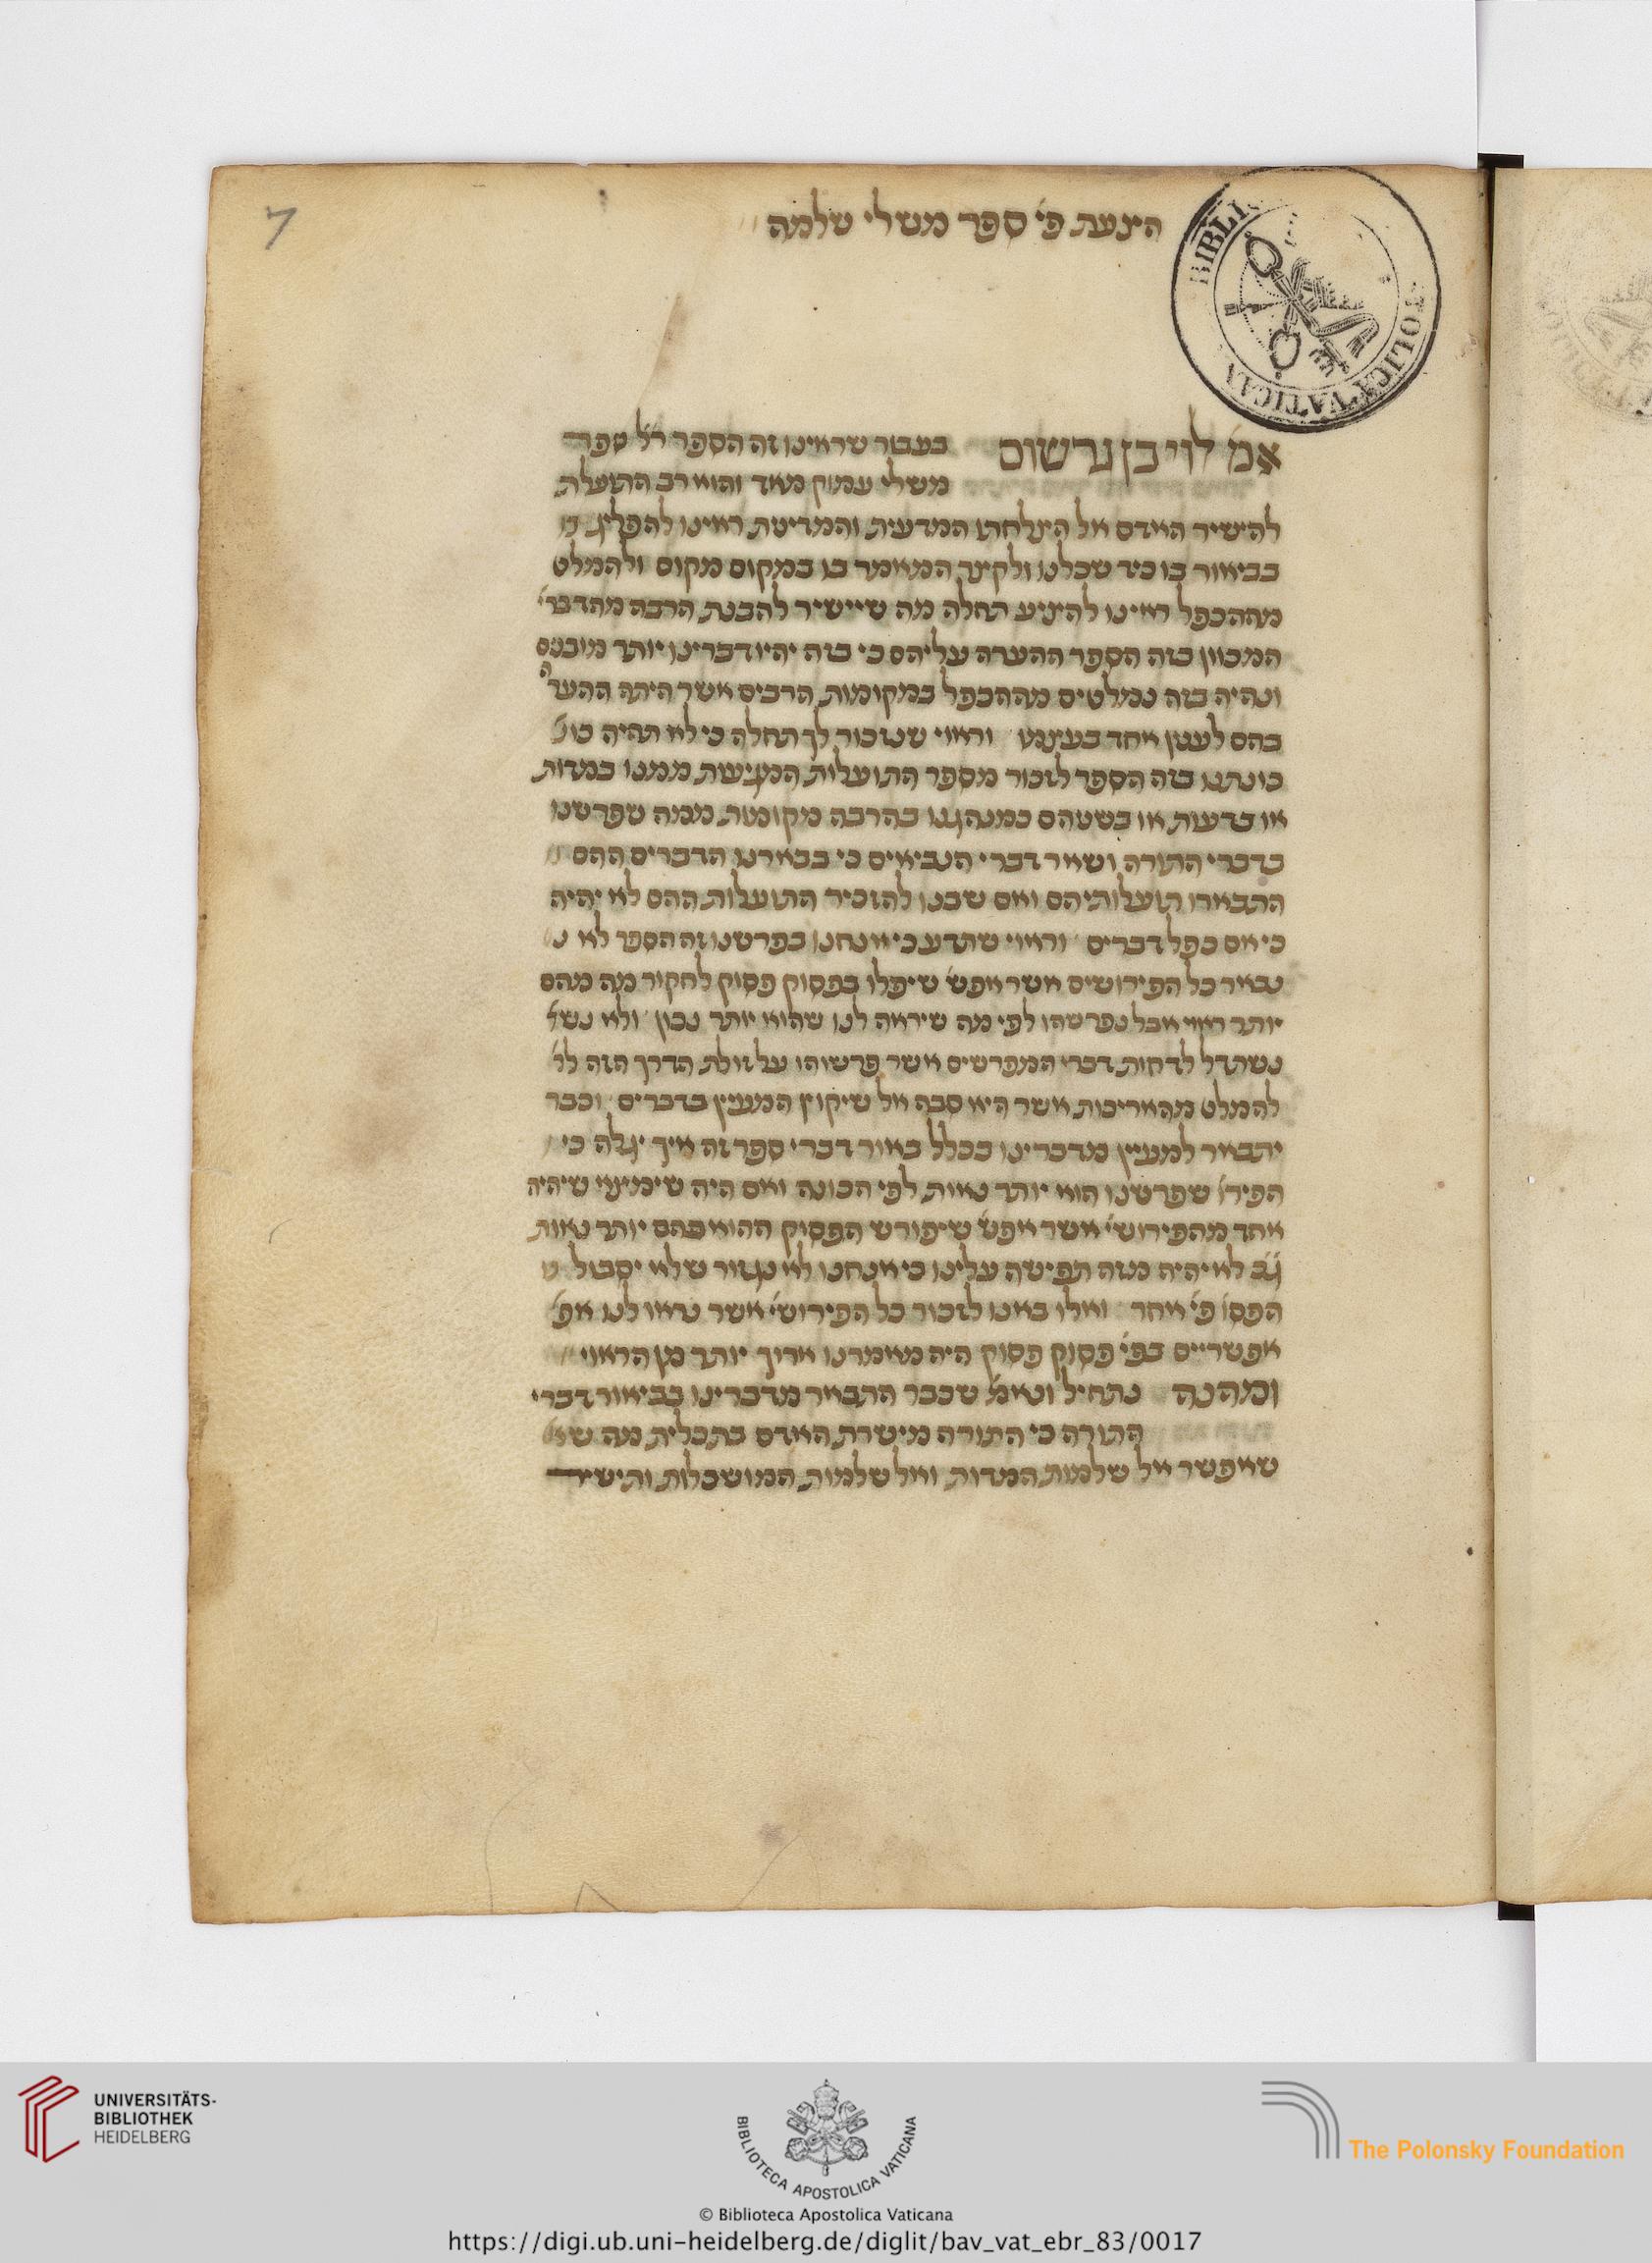 7
הצעת פי' ספר משלי שלמה
BIBLI TOLICA VATICAN
אמ' לוי בן גרשום בעבור שראינו זה הספר ר"ל ספר
משלי עמוק מאד והוא רב התועלת
להישיר האדם אל הצלחתו המדעית והמדינית ראינו להפליג
בביאור בו כיד שכלנו ולקצר המאמר בו במקום מקום ולהמלט
מההכפל ראינו להציע תחלה מה שיישיר להבנת הרבה מהדבר'
המכוון בזה הספר ההערה עליהם כי בזה יהיו דברינו יותר מובנים
ונהיה בזה נמלטים מההכפל במקומות הרבים אשר היתה ההער'
בהם לענין אחד בעינו וראוי שנזכור לך תחלה כי לא תהיה כונ'
כונתנו בזה הספר לזכור מספר התועלות המגיעות ממנו במדות
או בדעות או בשניהם כמנהגנו בהרבה מקומות ממה שפרשנו
בדברי התורה ושאר דברי הנביאים כי בבארנו הדברים ההם
התבארו תועלותיהם ואם שבנו להזכיר התועלות ההם לא יהיה
כי אם כפל דברים וראוי שתדע כי אנחנו בפרשנו זה הספר לא נ'
נבאר כל הפירושים אשר אפש' שיפלו בפסוק פסוק לחקור מה מהם
יותר ראוי אבל נפרשהו לפי מה שיראה לנו שהוא יותר נכון ולא נשת'
נשתדל לדחות דברי המפרשים אשר פרשוהו על זולת הדרך הזה לה'
להמלט מהאריכות אשר היא סבה אל שיקוץ המעיין בדברים וכבר
יתבאר למעיין מדברינו בכלל באור דברי ספר זה איך יגלה כי
הפיר' שפרשנו הוא יותר נאות לפי הכונה ואם היה שימצא שיהיה
אחד מהפירוש' אשר אפש' שיפורש הפסוק ההוא בהם יותר נאות
ג"כ לא יהיה מזה תפישה עלינו כי אנחנו לא נגזור שלא יסבול
הפס' פי' אחר ואלו באנו לזכור כל הפירוש' אשר נראו לנו אפ'
אפשריים בפי' פסוק פסוק היה מאמרנו ארוך יותר מן הראוי
ומהנה נתחיל ונאמ' שכבר התבאר מדברינו בביאור דברי
התורה כי התורה מישרת האדם בתכלית מה שא'
שאפשר אל שלמות המדות ואל שלמות המושכלות ותישיר
UNIVERSITÄTS-
BIBLIOTHEK
HEIDELBERG
BIBLIOTECA APOSTOLICA VATICANA
The Polonsky Foundation
© Biblioteca Apostolica Vaticana
https://digi.ub.uni-heidelberg.de/diglit/bav_vat_ebr_83/0017